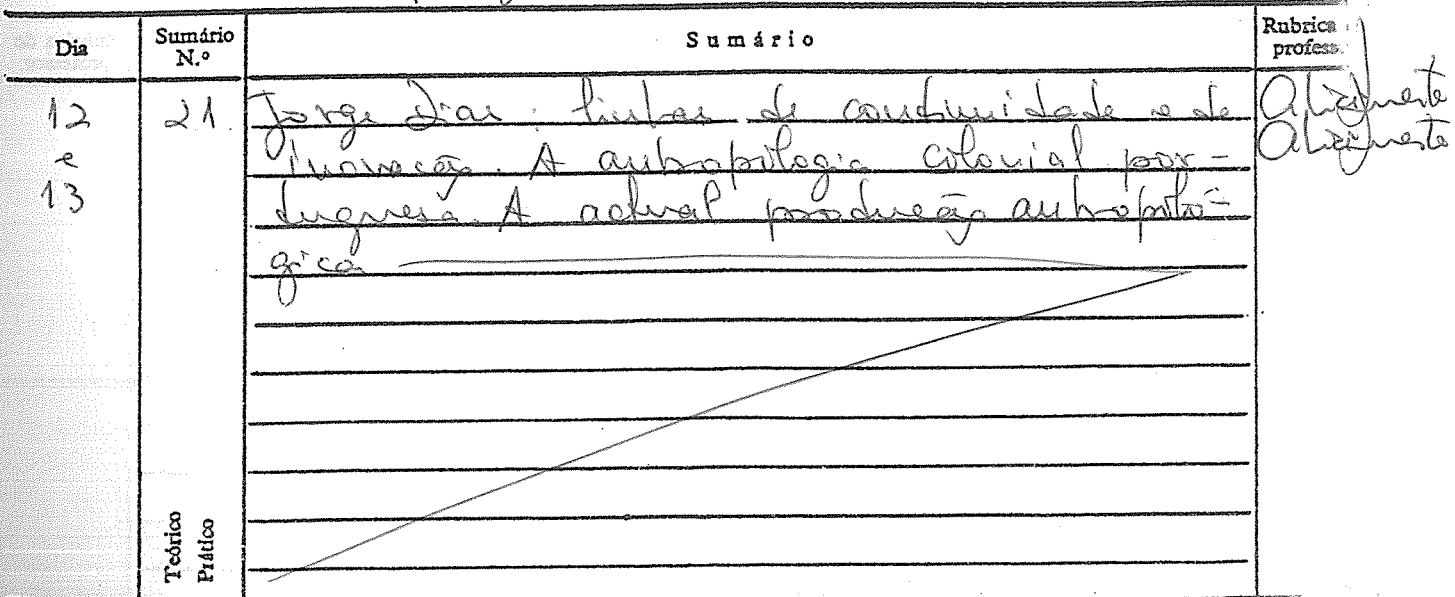 Dia
Sumário N.º
Sumário
Rubrica profess.
12 e 13
21.
Jorge Dias: linhas de continuidade e de
inovação. A antropologia colonial por-
tuguesa. A actual produção antropoló-
gica
Teórico
Prático